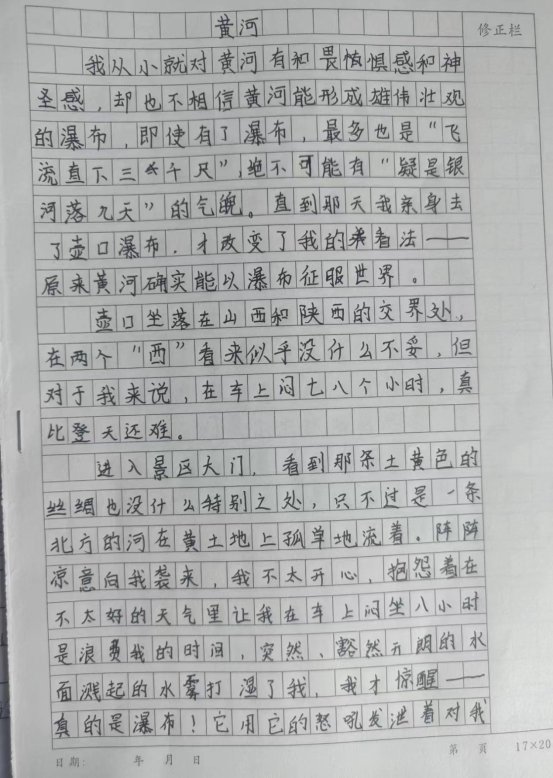 黄河
修正栏
我从小就对黄河有和畏怖惧感和神
圣感，却也不相信黄河能形成雄伟壮观
的瀑布，即使有了瀑布，最多也是“飞
流直下三千尺”，绝不可能有“疑是银
河落九天”的气魄。直到那天我亲身去
了壶口瀑布，才改变了我的看法——
原来黄河确实能以瀑布征服世界。
壶口坐落在山西和陕西的交界处，
在两个“西”看来似乎没什么不妥，但
对于我来说，在车上闷七八个小时，真
比登天还难。
进入景区大门，看到那条土黄色的
丝绸也没什么特别之处，只不过是一条
北方的河在黄土地上孤单地流着。阵阵
凉意向我袭来，我不太开心，抱怨着在
不太好的天气里让我在车上闷坐八小时
是浪费我的时间，突然、豁然开朗的水
面溅起的水雾打湿了我，我才惊醒——
真的是瀑布！它用它的怒吼发泄着对我
日期：　年　月　日
第　页　17×20